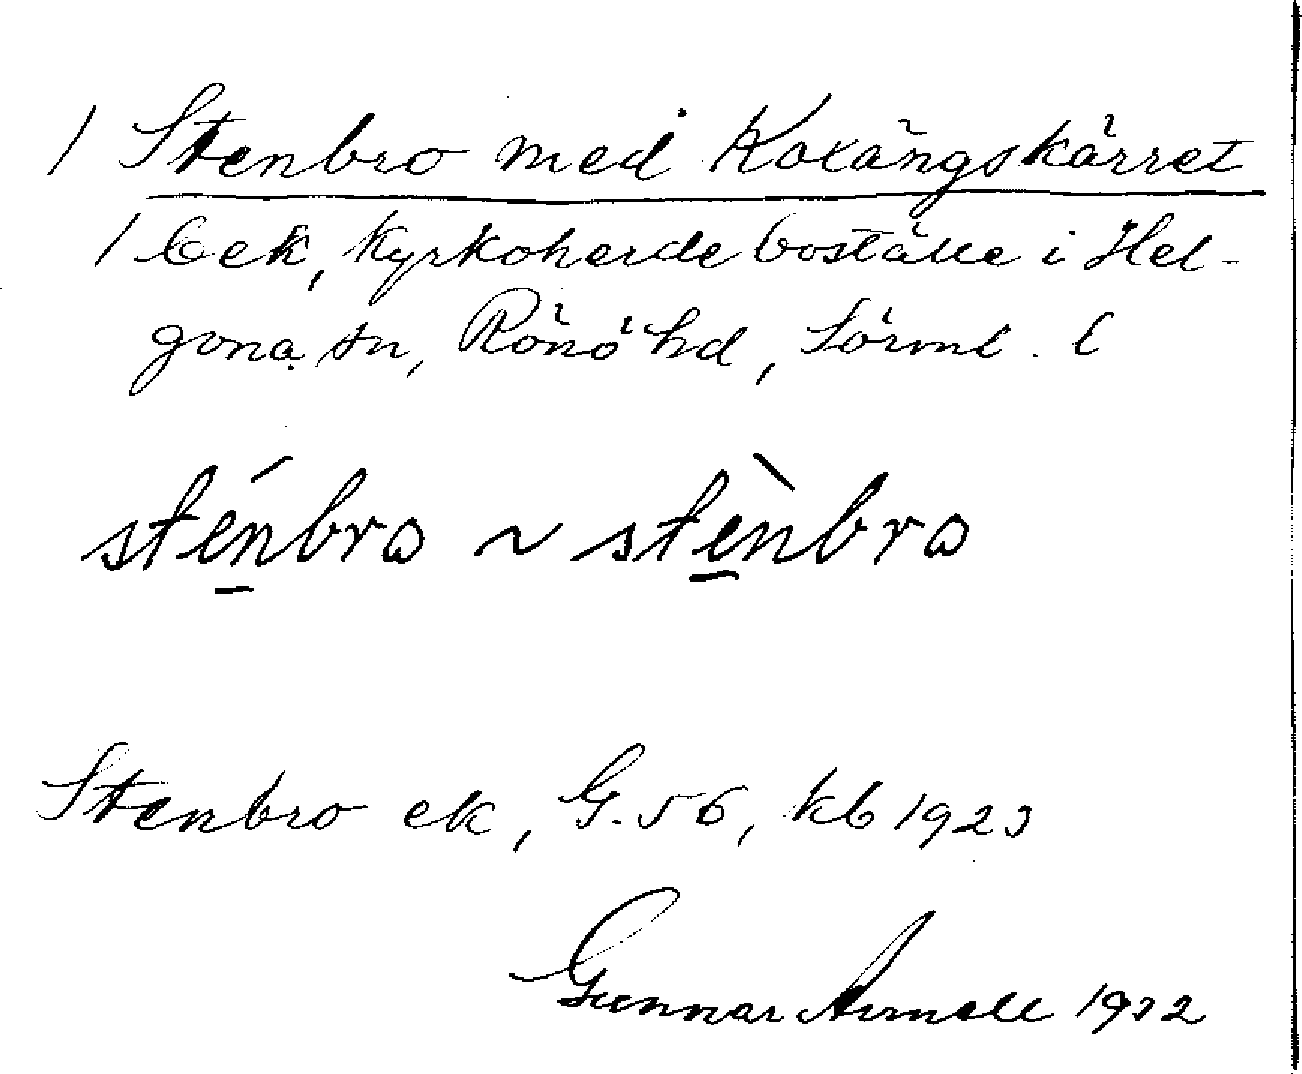 1 Stenbro med Koxängskärret
1 Cek, kyrkoherdeboställe i Hel-
gona sn, Rönö hd, Sörml. l
sténbro ~ stènbro
Stenbro ek, G.56, kb 1923
Gunnar 1932